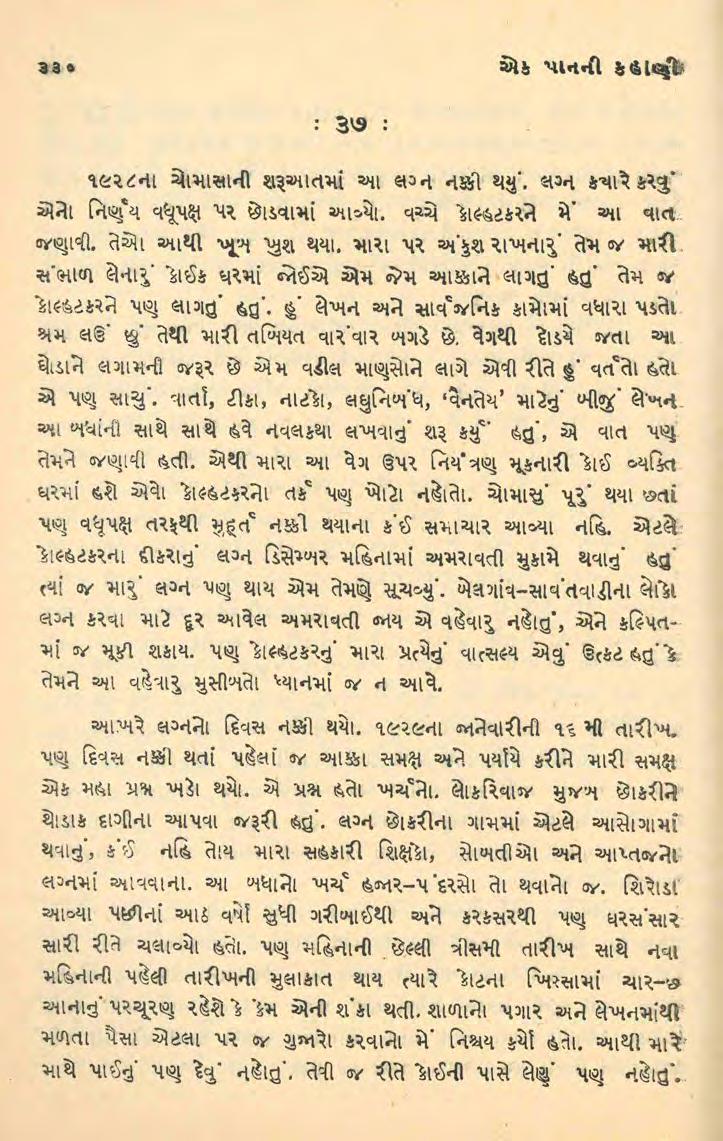 ૩૩૦ એક પાનની કહાણી
: ૩૭ :
૧૯૨૮ના ચોમાસાની શરૂઆતમાં આ લગ્ન નક્કી થયું. લગ્ન ક્યારે કરવું
એનો નિર્ણય વધૂપક્ષ પર છોડવામાં આવ્યો. વચ્ચે કોલ્હટકરને મેં આ વાત
જણાવી. તેઓ આથી ખૂબ ખુશ થયા. મારા પર અંકુશ રાખનારું તેમ જ મારી
સંભાળ લેનારું કોઈક ઘરમાં જોઈએ એમ જેમ આક્કાને લાગતું હતું તેમ જ
કોલ્હટકરને પણ લાગતું હતું. હું લેખન અને સાર્વજનિક કામોમાં વધારા પડતો
શ્રમ લઉં છું તેથી મારી તબિયત વારંવાર બગડે છે. વેગથી દોડયે જતા આ
ઘોડાને લગામની જરૂર છે એમ વડીલ માણસોને લાગે એવી રીતે હું વર્તતો હતો
એ પણ સાચું. વાર્તા, ટીકા, નાટકો, લઘુનિબંધ, ‘વૈનતેય’ માટેનું બીજું લેખન
આ બધાંની સાથે સાથે હવે નવલકથા લખવાનું શરૂ કર્યું હતું, એ વાત પણ
તેમને જણાવી હતી. એથી મારા આ વેગ ઉપર નિયંત્રણ મૂકનારી કોઈ વ્યક્તિ
ઘરમાં હશે એવો કોલ્હટકરનો તર્ક પણ ખોટો નહોતો. ચોમાસું પૂરું થયા છતાં
પણ વધૂપક્ષ તરફથી મુહૂર્ત નક્કી થયાના કંઈ સમાચાર આવ્યા નહિ. એટલે
કોલ્હટકરના દીકરાનું લગ્ન ડિસેમ્બર મહિનામાં અમરાવતી મુકામે થવાનું હતું
ત્યાં જ મારું લગ્ન પણ થાય એમ તેમણે સૂચવ્યું. બેલગાંવ-સાવંતવાડીના લોકો
લગ્ન કરવા માટે દૂર આવેલ અમરાવતી જાય એ વહેવારુ નહોતું, એને કલ્પિત-
માં જ મૂકી શકાય. પણ કોલ્હટકરનું મારા પ્રત્યેનું વાત્સલ્ય એવું ઉત્કટ હતું કે
તેમને આ વહેવારુ મુસીબતો ધ્યાનમાં જ ન આવે.
આખરે લગ્નનો દિવસ નક્કી થયો. ૧૯૨૯ના જાનેવારીની ૧૬ મી તારીખ.
પણ દિવસ નક્કી થતાં પહેલાં જ આક્કા સમક્ષ અને પર્યાયે કરીને મારી સમક્ષ
એક મહા પ્રશ્ન ખડો થયો. એ પ્રશ્ન હતો ખર્ચનો. લોકરિવાજ મુજબ છોકરીને
થોડાક દાગીના આપવા જરૂરી હતું. લગ્ન છોકરીના ગામમાં એટલે આસોગામાં
થવાનું, કંઈ નહિ તોય મારા સહકારી શિક્ષકો, સોબતીઓ અને આપ્તજનો
લગ્નમાં આવવાના. આ બધાનો ખર્ચ હજાર-પંદરસો તો થવાનો જ. શિરોડા
આવ્યા પછીનાં આઠ વર્ષો સુધી ગરીબાઈથી અને કરકસરથી પણ ઘરસંસાર
સારી રીતે ચલાવ્યો હતો. પણ મહિનાની છેલ્લી ત્રીસમી તારીખ સાથે નવા
મહિનાની પહેલી તારીખની મુલાકાત થાય ત્યારે કોટના ખિસ્સામાં ચાર-છ
આનાનું પરચૂરણ રહેશે કે કેમ એની શંકા થતી. શાળાનો પગાર અને લેખનમાંથી
મળતા પૈસા એટલા પર જ ગુજારો કરવાનો મેં નિશ્ચય કર્યો હતો. આથી મારે
માથે પાઈનું પણ દેવું નહોતું. તેવી જ રીતે કોઈની પાસે લેણું પણ નહોતું.